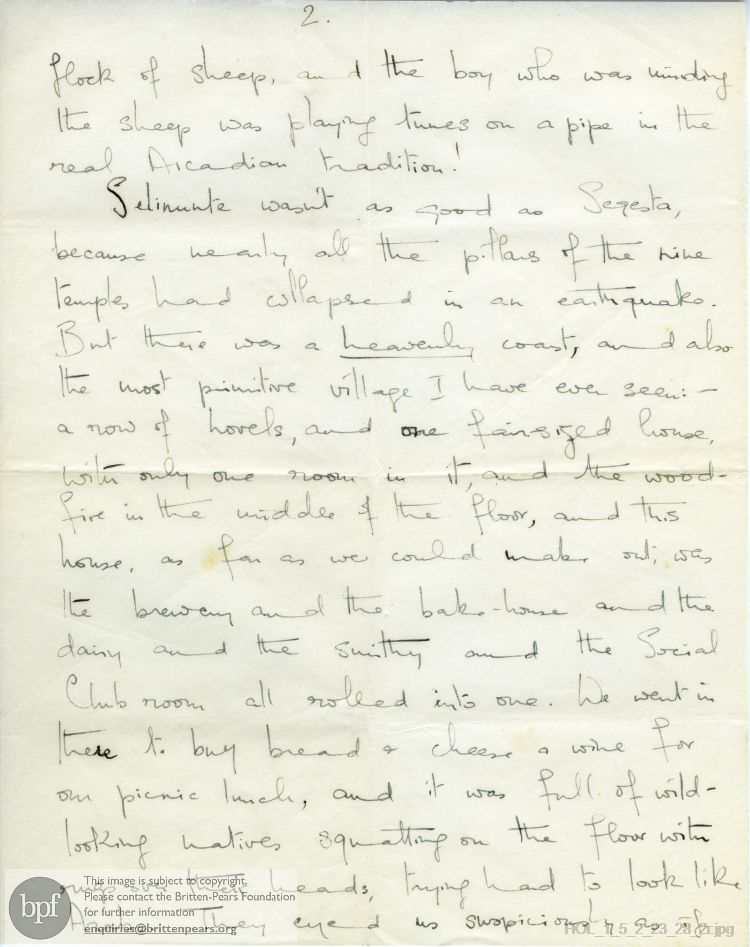 2.
flock of sheep, and the boy who was minding
the sheep was playing tunes on a pipe in the
real Arcadian tradition!
Selinunte wasn't as good as Segesta,
because nearly all the pillars of the nine
temples had collapsed in an earthquake.
But there was a heavenly coast, and also
the most primitive village I have ever seen:–
a row of hovels, and one fair-sized house,
with only one room in it, and the wood-
fire in the middle of the floor, and this
house, as far as we could make out, was
the brewery and the bake-house and the
dairy and the smithy and the Social
Club room all rolled into one. We went in
there to buy bread & cheese & wine for
our picnic lunch, and it was full of wild-
looking natives squatting on the floor with
over their heads, trying hard to look like
They eyed us suspiciously as if
bpf
This image is subject to copyright.
Please contact the Britten-Pears Foundation
for further information
enquiries@brittenpears.org
HOL_1_5_2_23_28_2.jpg